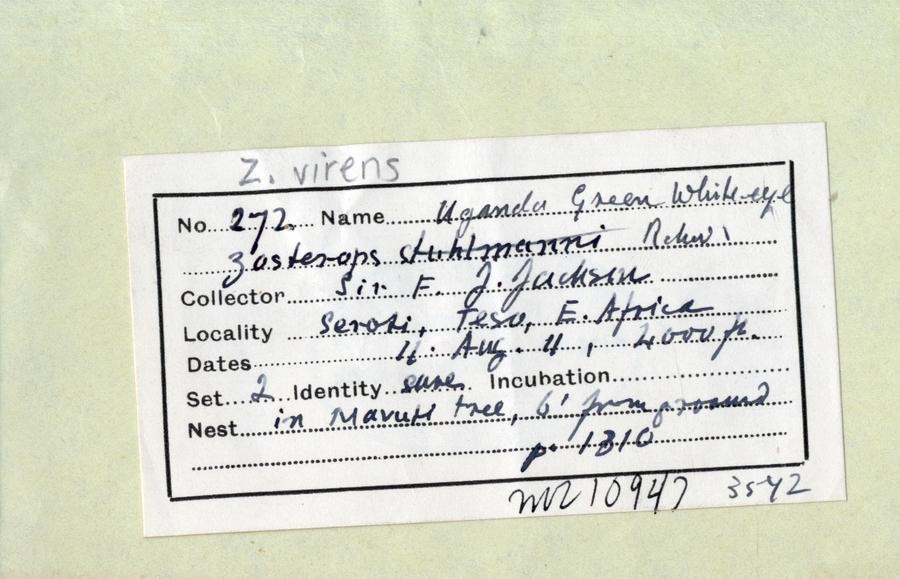 Z. virens
No. 272. Name Uganda Green White-eye
Zosterops stuhlmanni
Collector Sir F. J. Jackson
Locality Seroti, Teso, E. Africa
Dates Aug. 11, ft.
Set 2 Identity sure. Incubation
Nest in tree, 6' from ground
p. 1310
10947 3542